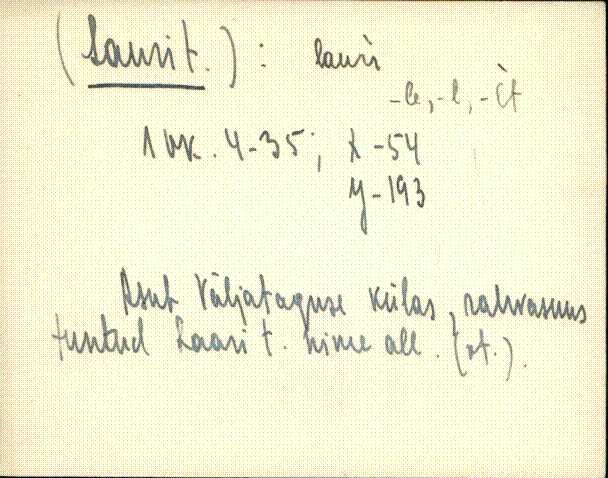 (Lauri t.) : lauri
-le, -l, -lt
1 vk. 4-35; x-54
y-193
Asub Väljataguse külas, rahvasuus
tuntud Laari t. nime all. (vt.).